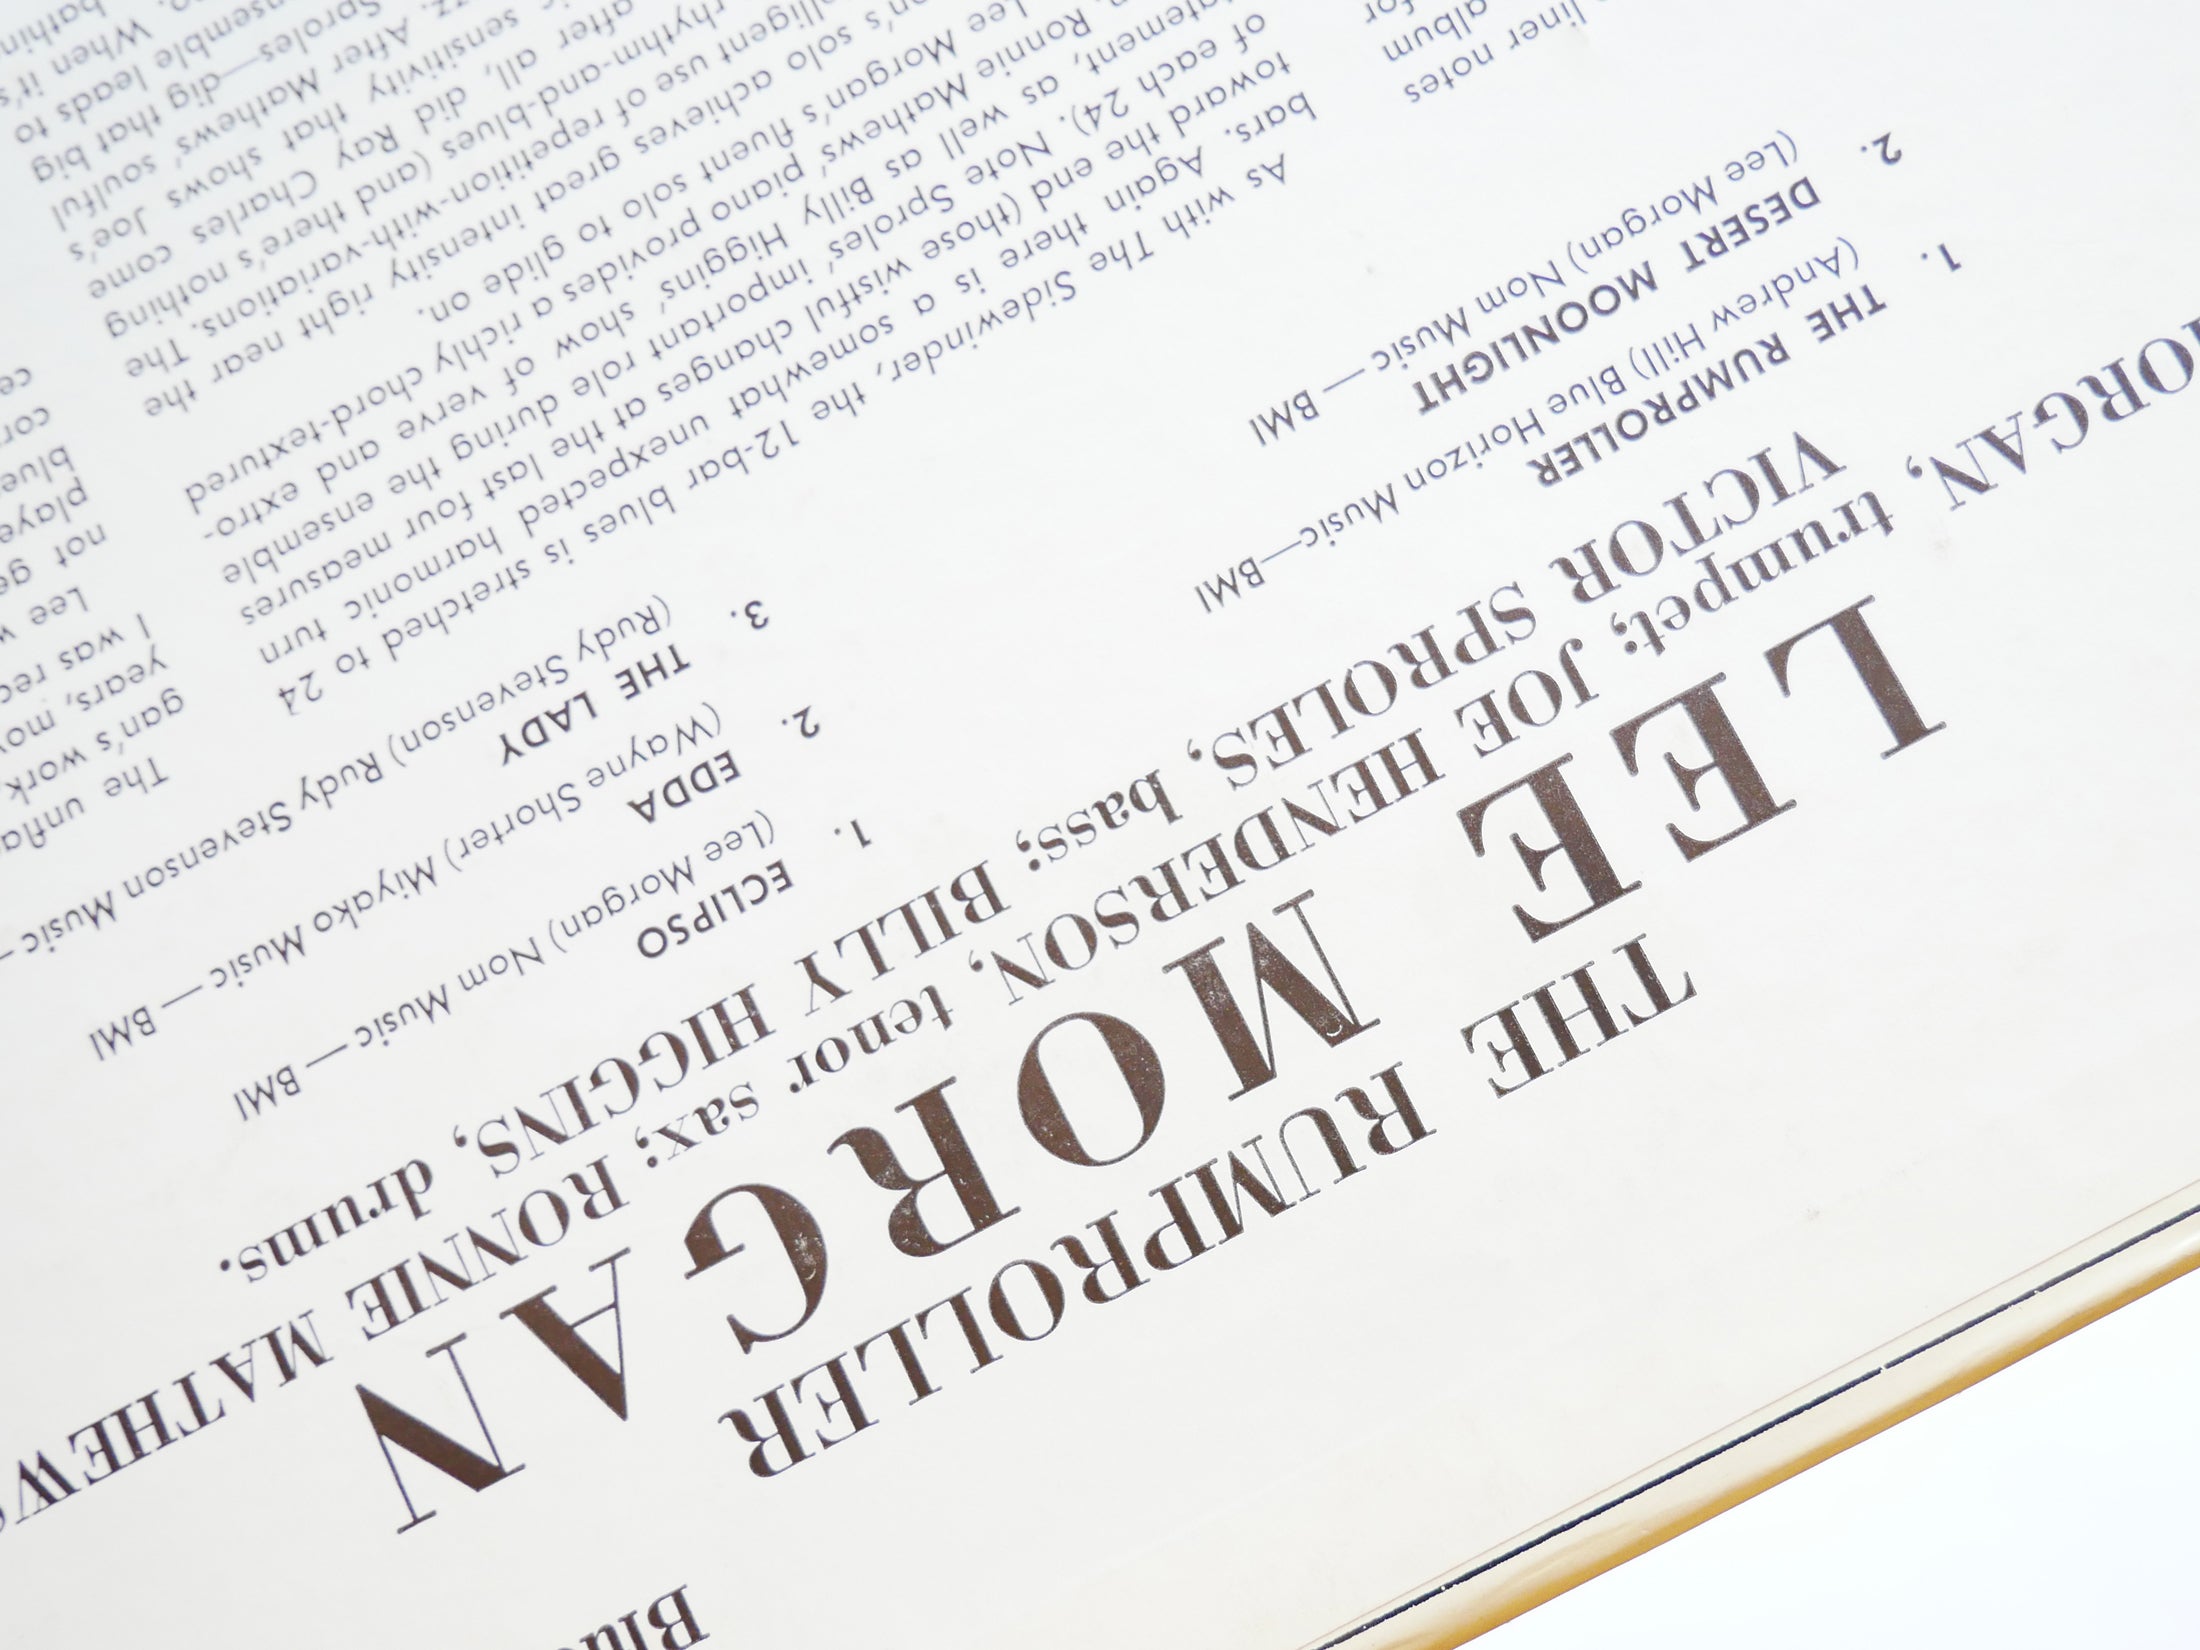 THE RUMPROLLER
LEE MORGAN
ORGAN, trumpet; JOE HENDERSON, tenor sax; RONNIE MATHEWS
VICTOR SPROLES, bass; BILLY HIGGINS, drums.
1. THE RUMPROLLER
(Andrew Hill) Blue Horizon Music—BMI
2. DESERT MOONLIGHT
(Lee Morgan) Nom Music — BMI
1. ECLIPSO
(Lee Morgan) Nom Music — BMI
2. EDDA
(Wayne Shorter) Miyako Music — BMI
3. THE LADY
(Rudy Stevenson) Rudy Stevenson Music—
liner notes
album
for
As with The Sidewinder, the 12-bar blues is stretched to 24
bars. Again there is a somewhat unexpected harmonic turn
toward the end (those wistful changes at the last four measures
of each 24). Note Sproles' important role during the ensemble
tatement, as well as Billy Higgins' show of verve and extro-
Ronnie Mathews' piano provides a richly chord-textured
Lee Morgan's fluent solo to glide on.
on's solo achieves great intensity right near the
elligent use of repetition-with-variations. The
rhythm-and-blues (and there's nothing
after all, did Ray Charles come
sensitivity that shows Joe's
After Mathews' soulful
Sproles—dig that big
ensemble leads to
When it's
The unfla
gan's work
years, mov
I was rec
Lee w
not ge
playe
blue
cor
ce